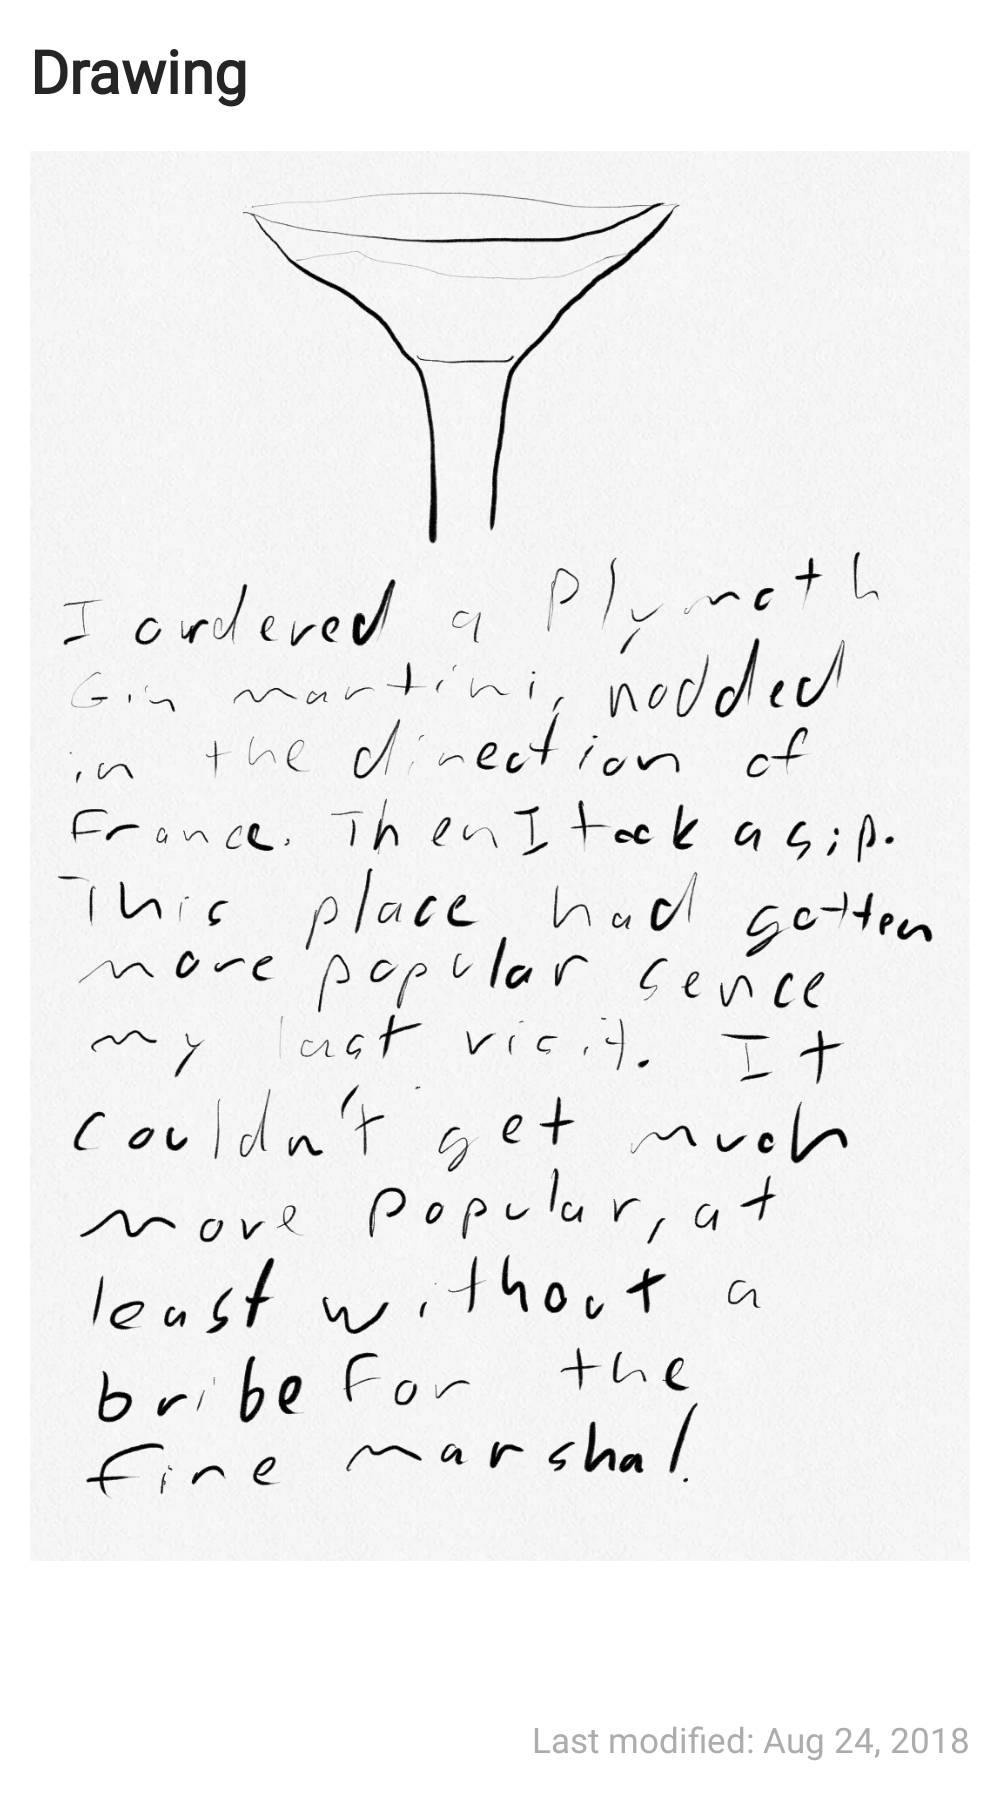 Drawing
I ordered a Plymoth
Gin martini, nodded
in the direction of
France. Then I took a sip.
This place had gotten
more popular sence
my last visit. It
couldn't get much
more popular, at
least without a
bribe for the
fire marshal.
Last modified: Aug 24, 2018